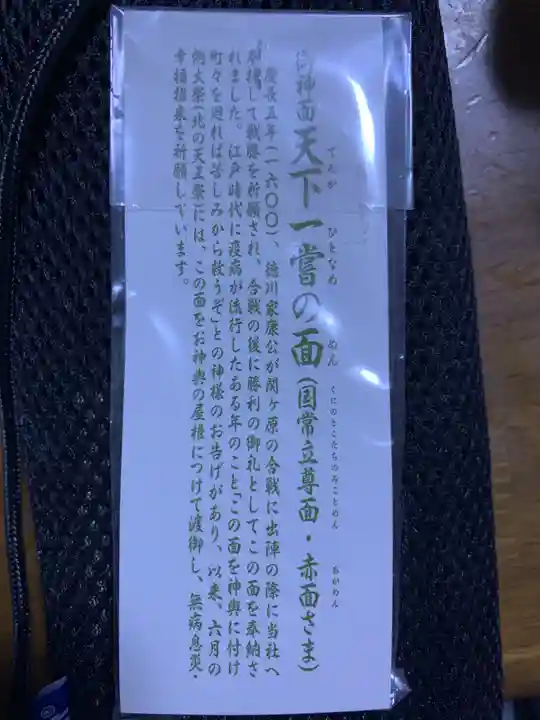 御神面 天下一嘗の面(国常立尊面・赤面さま)
てんか ひとなめ めん くにのとこたちのみことめん あかめん
慶長五年(一六〇〇)、徳川家康公が関ヶ原の合戦に出陣の際に当社へ
参拝して戦勝を祈願され、合戦の後に勝利の御礼としてこの面を奉納さ
れました。江戸時代に疫病が流行したある年のこと「この面を神輿に付け
町々を廻れば苦しみから救うぞ」との神様のお告げがあり、以来、六月の
例大祭・北の天王祭には、この面をお神輿の屋根につけて渡御し、無病息災・
幸福招来を祈願しています。